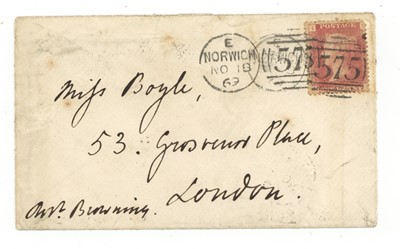 E
NORWICH
NO 18
69
575
POSTAGE
575
Miss Boyle,
53. Grosvenor Place,
London.
Robt. Browning.